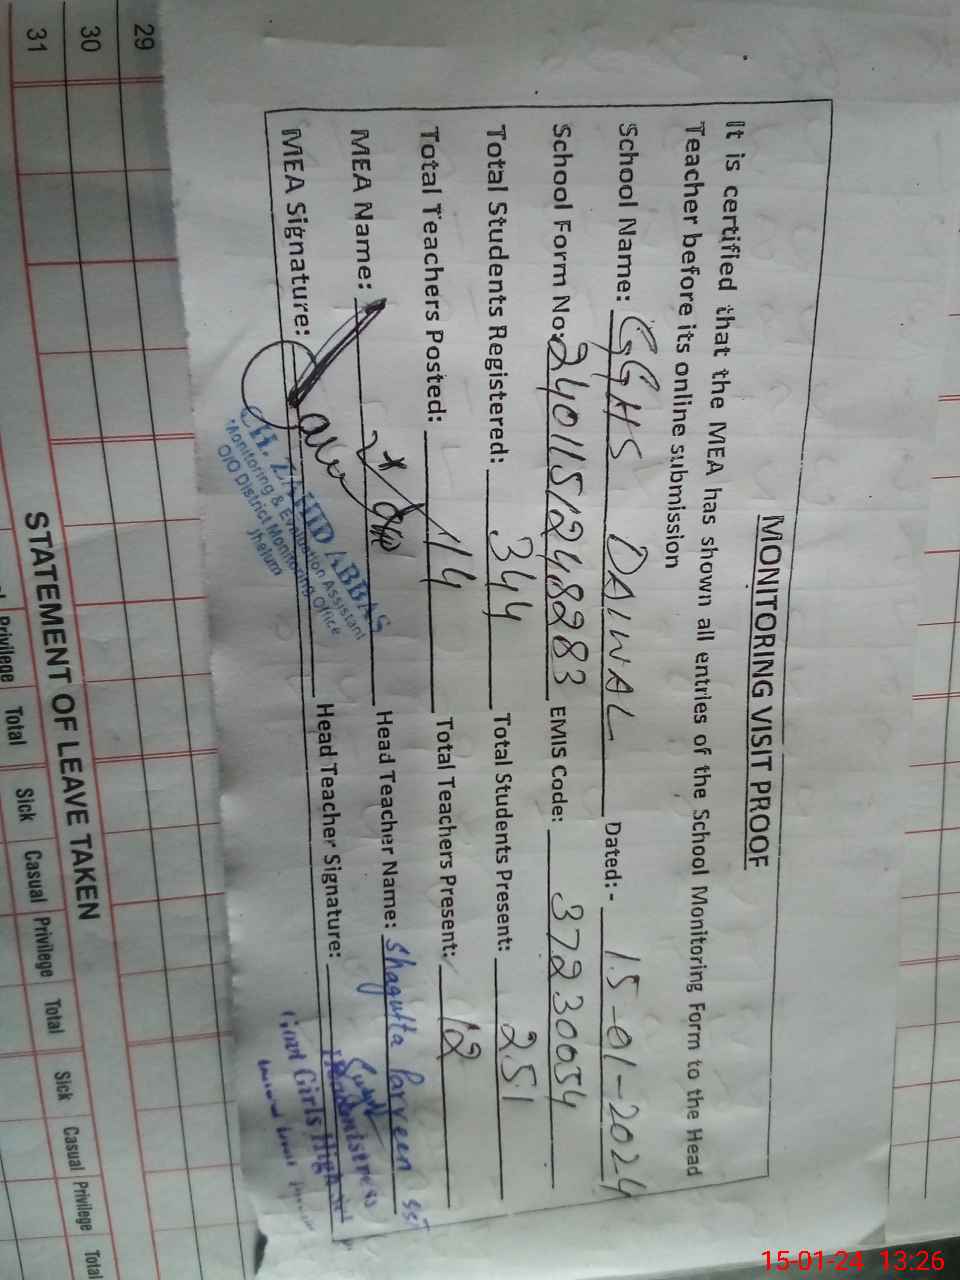 MONITORING VISIT PROOF
It is certified that the MEA has shown all entries of the School Monitoring Form to the Head
Teacher before its online submission
School Name: GGHS DAIWAL Dated:- 15-01-2024
School Form No: 2401151248283 EMIS Code: 37230054
Total Students Registered: 344 Total Students Present: 251
Total Teachers Posted: 14 Total Teachers Present: 12
MEA Name: Head Teacher Name: Shagufta Parveen SST
MEA Signature: Head Teacher Signature:
CH. ZAHID ABBAS
Monitoring & Evaluation Assistant
O/O District Monitoring Office
Jhelum
Headmistress
Govt Girls High
29
30
31
STATEMENT OF LEAVE TAKEN
Privilege Total Sick Casual Privilege Total Sick Casual Privilege Total
15-01-24 13:26